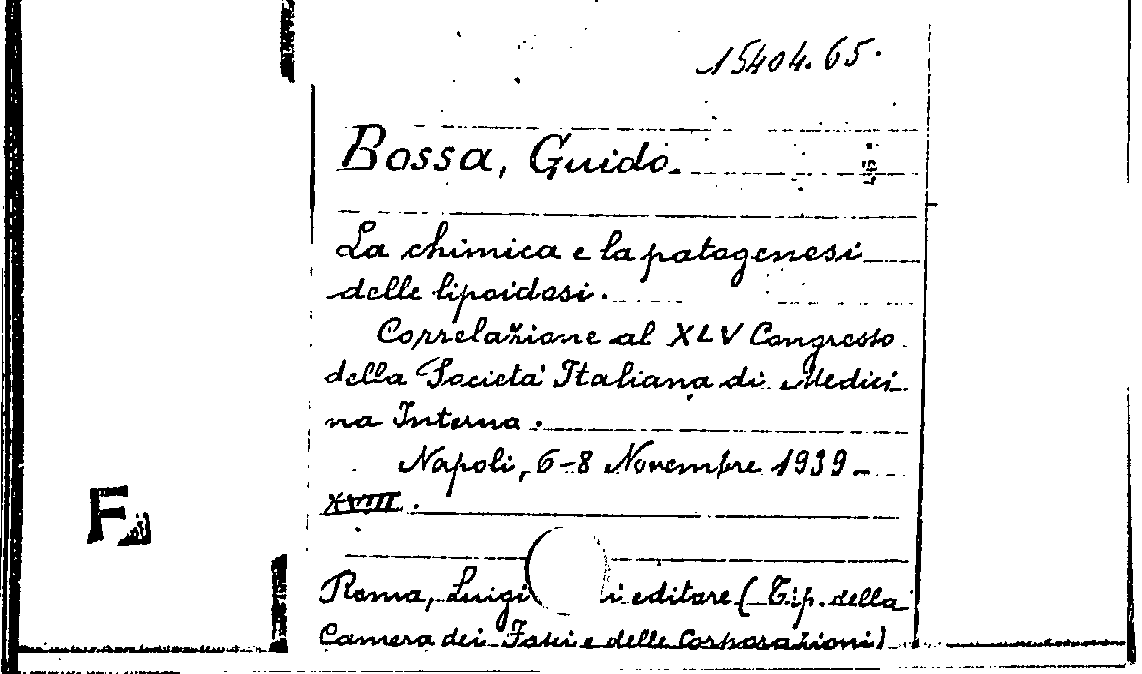 15404.65.
Bossa, Guido.
La chimica e la patogenesi
delle lipoidosi.
Correlazione al XLV Congresso
della Società Italiana di Medici
na Interna.
Napoli, 6-8 Novembre 1939-
XVIII.
Roma, Luigi i editore (Tip. della
Camera dei Fasci e delle Corporazioni)
F